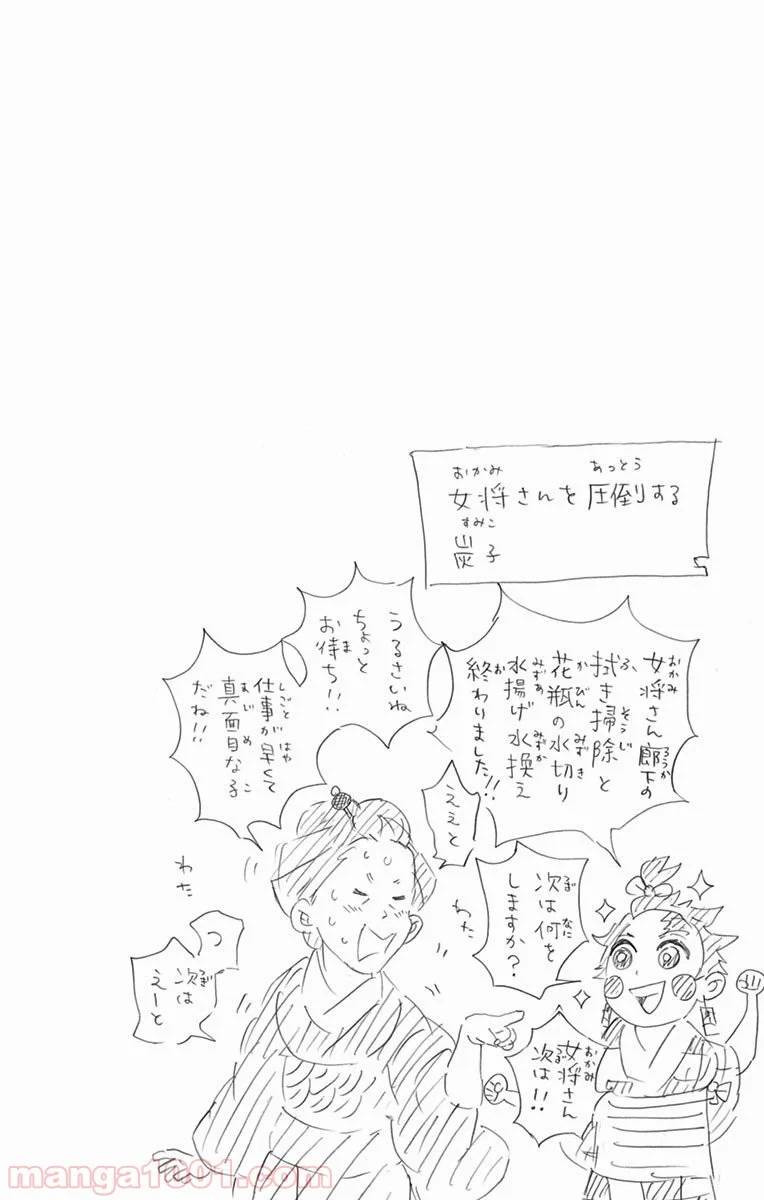 女将さんを圧倒する
炭子
女将さん廊下の
拭き掃除と
花瓶の水切り
水揚げ水換え
終わりました!!
次は何を
しますか?
女将さん
次は!!
うるさいね
ちょっと
お待ち!!
仕事が早くて
真面目な子
だね!!
ええと
わた
わた
つ
次は
えーと
manga1001.com